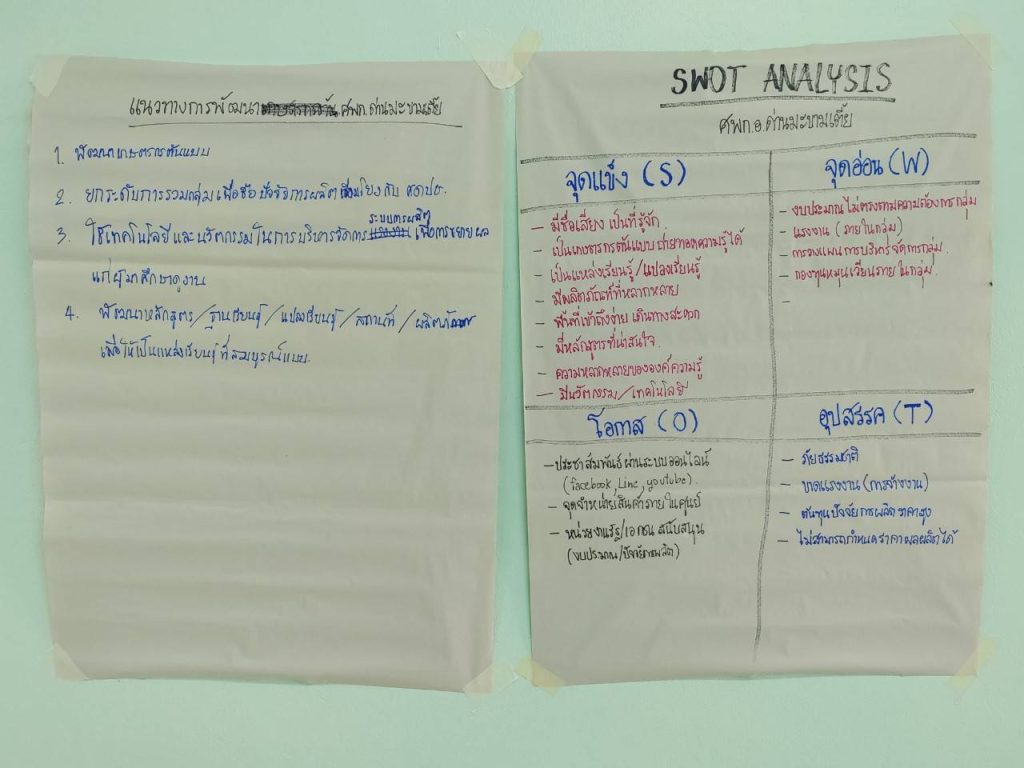 แนวทางการพัฒนา ศพก.ด่านมะขามเตี้ย
1. พัฒนาเกษตรกรต้นแบบ
2. ยกระดับการรวมกลุ่มเพื่อซื้อปัจจัยการผลิต เชื่อมโยงกับ ศดปช.
3. ใช้เทคโนโลยีและนวัตกรรมในการบริหารจัดการระบบการผลิตเพื่อการขยายผล
แก่ผู้มาศึกษาดูงาน
4. พัฒนาหลักสูตร/ฐานเรียนรู้/แปลงเรียนรู้/สถานที่/ผลิตภัณฑ์
เพื่อให้เป็นแหล่งเรียนรู้ที่สมบูรณ์แบบ.
SWOT ANALYSIS
ศพก.อ.ด่านมะขามเตี้ย
จุดแข็ง (S)
- มีชื่อเสียง เป็นที่รู้จัก
- เป็นเกษตรกรต้นแบบ ถ่ายทอดความรู้ได้
- เป็นแหล่งเรียนรู้/แปลงเรียนรู้
- มีผลิตภัณฑ์ที่หลากหลาย
- พื้นที่เข้าถึงง่าย เดินทางสะดวก
- มีหลักสูตรที่น่าสนใจ
- ความหลากหลายขององค์ความรู้
- มีนวัตกรรม/เทคโนโลยี
จุดอ่อน (W)
- งบประมาณไม่ตรงตามความต้องการกลุ่ม
- แรงงาน (ภายในกลุ่ม)
- การวางแผนการบริหารจัดการกลุ่ม
- กองทุนหมุนเวียนภายในกลุ่ม.
-
โอกาส (O)
- ประชาสัมพันธ์ผ่านระบบออนไลน์
(facebook, Line, youtube).
- จุดจำหน่ายสินค้าภายในศูนย์
- หน่วยงานรัฐ/เอกชน สนับสนุน
(งบประมาณ/ปัจจัยการผลิต)
อุปสรรค (T)
- ภัยธรรมชาติ
- ขาดแรงงาน (การจ้างงาน)
- ต้นทุนปัจจัยการผลิตราคาสูง
- ไม่สามารถกำหนดราคาผลผลิตได้